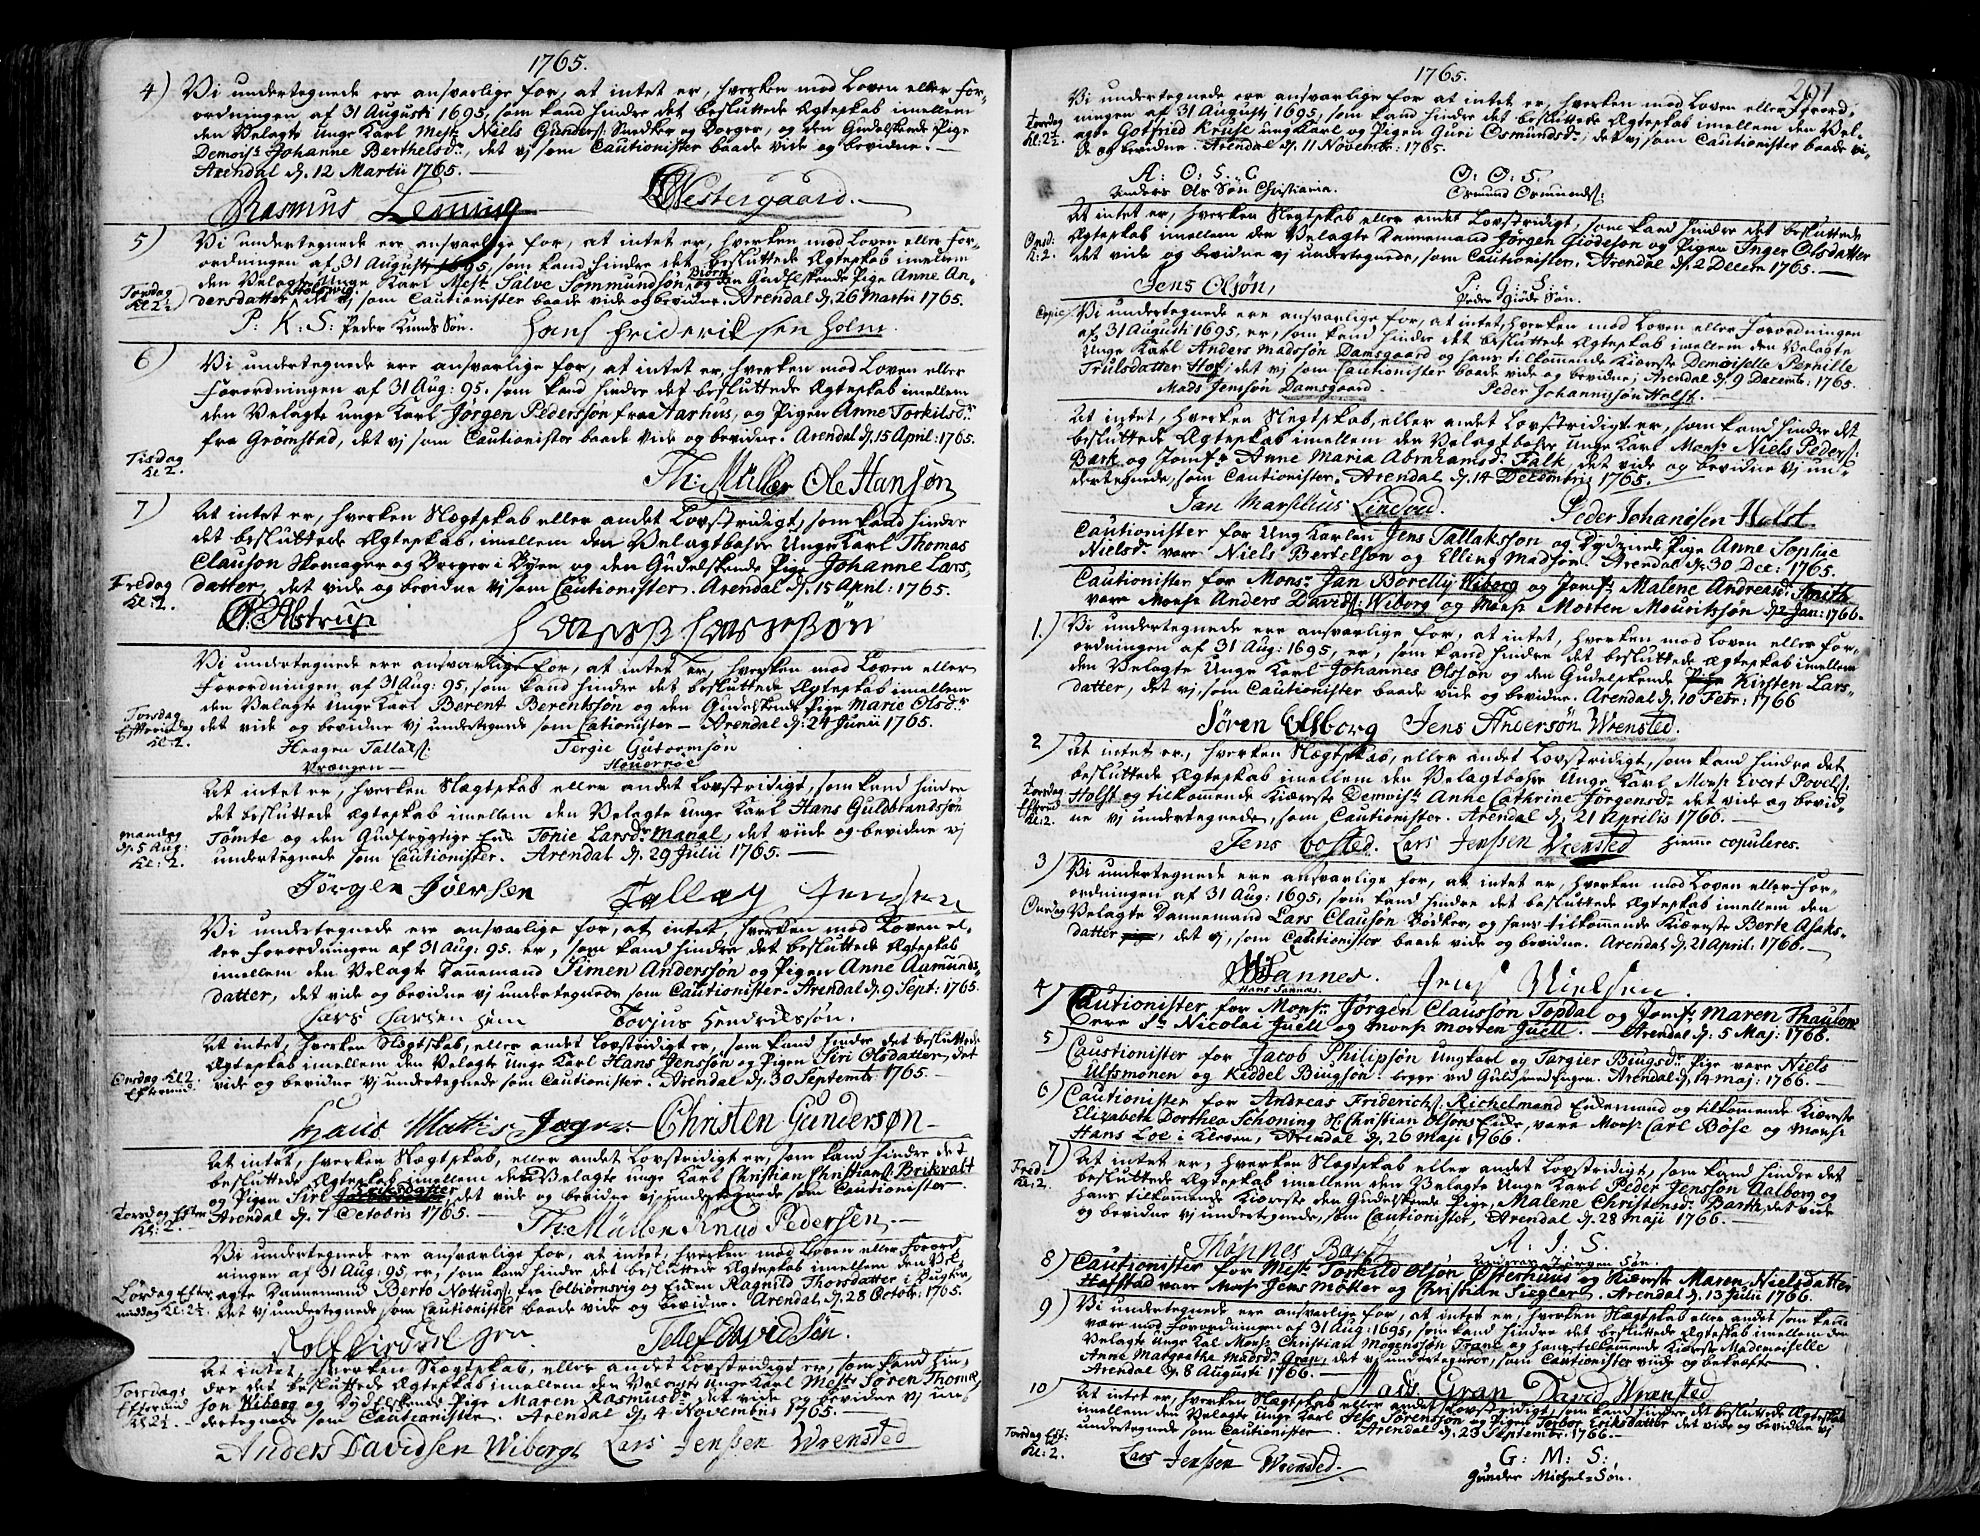 1765.
4) Vi undertegnede ere ansvarlige for, at intet er, hverken mod Loven eller For-
ordningen af 31 Augusti 1695, som kand hindre det besluttede Ægteskab imellem
den Velagte Unge Karl Mest: Niels Gunders: Snedker og Borger, og den Gudelskende Pige
Demois: Johanne Berthelsd:r, det vj som Cautionister baade vide og bevidne.
Arendal d. 12 Martii 1765.
Rasmus Lemmig Westergaard.
5) Vi undertegnede ere ansvarlige for, at intet er, hverken mod Loven eller For-
ordningen af 31 Augusti 1695, som kand hindre det besluttede Ægteskab imellem
den Velagte Unge Karl Mest: Salve Tommundsøn Biørn og den Gudelskende Pige Anne An-
Torsdag Kl 2½
dersdatter det vj, som Cautionister baade vide og bevidne. Arendal d. 26 Martii 1765.
P: K: S: Peder Knuds Søn. Hans Friderik sen Holm.
6) Vi undertegnede ere ansvarlige for, at intet er, hverken mod Loven eller
Forordningen af 31 Aug: 95. som kand hindre det besluttede Ægteskab imellem
den Velagte unge Karl Jørgen Pedersøn fra Aarhus, og Pigen Anne Torkilsd:r
fra Grømstad, det vj som Cautionister baade vide og bevidne. Arendal d. 15 April: 1765.
Tisdag Kl 2.
Th: Müller Ole Hansøn
7) At intet er, hverken Slægtskab eller andet Lovstridigt, som kand hindre
det besluttede Ægteskab, imellem den Velagtbahre Unge Karl Thomas
Clauson Skomager og Borger i Byen og den Gudelskende Pige Johanne Lars,
Fredag Kl: 2.
datter, det vide og bevidne vj som Cautionister. Arendal d. 15 April: 1765.
Alstrup
Vi undertegnede ere ansvarlige for, at intet er, hverken mod Loven eller
Forordningen af 31 Aug: 95, som kand hindre det besluttede Ægteskab imellem
den Velagte Unge Karl Berent Berentssøn og den Gudelskende Pige Marie Olsd:r
Torsdag Eftermidag Kl: 2.
det vide og bevidne vj undertegnede som Cationister – Arendal d. 24 Junii 1765.
Haagen Tallaks: Tergie Gutormsøn
Vrængen –
At intet er, hverken Slegtskab eller andet Lovstridigt, som kand hindre
det besluttede Ægteskab imellem den Velagte unge Karl Hans Guldbrandssøn
mandag d. 5 Aug: Kl: 2.
Tømte og den Gudfrygtige Enke Tonie Larsd:r Marial, det vide og bevidne vj
undertegnede som Cautionister. Arendal d. 29 Julii 1765.
Jørgen Joersen Jenssen
Vi undertegnede ere ansvarlige for, at intet, hverken mod Loven el-
ler Forordningen af 31 Aug: 95. er, som kand hindre det besluttede Ægteskab
imellem den Velagte Dannemand Simen Anderssøn og Pigen Anne Aamunds-
datter, det vide og bevidne vj undertegnede som Cautionister. Arendal d. 9 Sept: 1765.
Lars Larsen Torjus Hendrikssøn.
At intet, hverken Slægtskab, eller andet Lovstridigt er, som kand hindre det besluttede
Ægteskab imellem den Velagte Unge Karl Hans Jenssøn og Pigen Siri Olsdatter, det
Onsdag Kl 2. Eftermid.
vide og bevidne vj undertegnede som Cautionister. Arendal d. 30 Septembr 1765.
Hans Mathis Jæger Christen Gundersøn
At intet, hverken Slegtskab, eller andet Lovstridigt er, som kand hindre det
besluttede Ægteskab, imellem den Velagte unge Karl Christian Christians: Brikvalt
og Pigen Siri Eriksdatter, det vide og bevidne vj undertegnede som Cautionister
Torsdag Efter Kl: 2.
Arendal d. 7 Octobris 1765.
Th: Müller Knud Pedersen
Vi undertegnede ere ansvarlige for, at intet, hverken mod Loven eller Forord
ningen af 31 Aug: 95 er, som kand hindre det besluttede Ægteskab imellem den Vel-
Lørdag Efter middag Kl: 2½.
agte Dannemand Berto Nottus: fra Colbiørnsvig og Enken Ragnild Thorsdatter i Bugten
det vj undertegnede som Cautionister baade vide og bevidne. Arendal d. 28 Octobr: 1765.
Tellef Davidsøn.
At intet, hverken Slægtskab, eller andet Lovstridigt er, som kand hin-
dre det besluttede Ægteskab imellem den Velagte Unge Karl Mest: Søren Thomæ
Torsdags Eftermid Kl 2½.
søn Wiborg og Dydelskende Pige Maren Rasmusd:r det vide og bevidne vj un-
dertegnede som Cautionister. Arendal d. 4 Novembris 1765.
Anders Davidsen Wiborg Lars Jenssen Wrensted
1765. 201
Vi undertegnede ere ansvarlige for at intet er, hverken mod Loven eller Forord
ningen af 31 Augusti 1695, som kand hindre det besluttede Ægteskab imellem den Vel-
Torsdag Kl: 2½.
agte Gotfried Kruse ung Karl og Pigen Guri Osmundsd:r; det vj som Cautionister baade vi-
de og bevidne. Arendal d. 11 Novembr: 1765.
A: O: S: C O: O: S.
Anders Ols Søn Christiania. Osmund Osmunds:
At intet er, hverken Slægtskab eller andet Lovstridigt, som kand hindre det besluttede
Onsd: Kl: 2.
Ægteskab imellem den Velagte Dannemand Jørgen Giødeson og Pigen Inger Olsdatter
det vide og bevidne vj undertegnede, som Cautionister. Arendal d. 2 Decem 1765.
Jens Olsøn, P: G: S:
Peder Giøde Søn.
Copie/ Vi undertegnede ere ansvarlige for, at intet, hverken mod Loven eller Forordningen
af 31 Augusti 1695 er, som kand hindre det besluttede Ægteskab imellem den Velagte
Unge Karl Anders Madssøn Damsgaard og hans tilkommende Kiæreste Demoiselle Pernille
Trulsdatter Hof; det vj som Cautionister baade vide og bevidne; Arendal d. 9 Decembr: 1765.
Mads Jemsøn Damsgaard Peder Johannissøn Holst.
At intet, hverken Slegtskab, eller andet Lovstridigt er, som kand hindre det
besluttede Ægteskab imellem den Velagtbahre Unge Karl Mons:r Niels Peders:
Bark og Jomf:r Anne Maria Abrahamsd: Falk, det vide og bevidne vj un-
dertegnede, som Cautionister. Arendal d. 14 Decembris 1765.
Jan Marselius Lindved. Peder Johannsen Holst
Cautionister for Ung Karlen Jens Tallakssøn og Dydziret Pige Anne Sophie
Nielsd:r vare Niels Bertelsøn og Elling Madsøn. Arendal d. 30 Dec: 1765.
Cautionister for Mons:r Jan Borelly Wiborg og Jomf:r Malene Andreasd: Smith
vare Mons:r Anders Davids: Wiborg og Mons:r Morten Mouritssøn d. 2 Jan: 1766.
1.) Vi undertegnede ere ansvarlige for, at intet, hverken mod Loven eller For-
ordningen af 31 Aug: 1695, er, som kand hindre det besluttede Ægteskab imellem
den Velagte Unge Karl Johannes Olssøn og den Gudelskende Pige Kirsten Lars-
datter, det vj, som Cautionister baade vide og bevidne. Arendal d. 10 Febr: 1766
Søren Elsborg Jens Andersøn Wrensted.
2) At intet er, hverken Slegtskab, eller andet Lovstridigt, som kand hindre det
besluttede Ægteskab imellem den Velagtbahre Unge Karl Mons:r Evert Povels:
Torsdag Eftermid Kl: 2.
Holst og tilkommende Kiæreste Demois:le Anne Cathrine Jørgensd: det vide og bevid-
ne vj undertegnede, som Cautionister. Arendal d. 21 Aprilis 1766.
Jens Lars Jenssen Wrensted Hiemme copuleres.
3) Vi undertegnede ere ansvarlige for, at intet er, hverken mod Loven eller For-
ordningen af 31 Aug: 1695, som kand hindre det besluttede Ægteskab imellem den
Onsdag Velagte Dannemand Lars Clauson Bødker, og hans tilkommende Kiæreste Berte Asaks-
datter, det vj, som Cautionister baade vide og bevidne. Arendal d. 21 April. 1766.
Sannes. Jens Nielsen
Hans Sannes.
4) Cautionister for Mons:r Jørgen Claussøn Topdal og Jomf:r Maren Thaulow
ere S:r Nicolai Juell og Mons:r Morten Juell. Arendal d. 5 Maj. 1766.
5) Caustionister for Jacob Philipsøn Ungkarl og Targier Biugsd:r Pige vare Niels
Ulfsmonen og Keddel Biugsøn. begge ved Guldsmedengen. Arendal d. 14 maj: 1766.
6) Cautionister for Andreas Friderichs: Richelmand Enkemand og tilkommende Kiæreste
Elizabeth Dorthea Schoning H: Christian Olsons Enke, vare Mons:r Carl Bose og Mons:r
Hans Loe i Kleven, Arendal d. 26 Maji 1766.
7) At intet er, hverken Slegtskab eller andet Lovstridigt, som kand hindre det
Fred. Kl: 2.
besluttede Ægteskab imellem den Velagte Unge Karl Peder Jenssøn Aalborg og
hans tilkommende Kiæreste den Gudelskende Pige, Malene Christensd: Barth, det vide
og bevidne vj undertegnede, som Cautionister, Arendal d. 28 Maji 1766.
Thønnes Barth A: J: S.
8) Cautionister for Mest: Torkild Olsøn Østerhuus og Kiæreste Maren Nielsdatter
Hafstad vare Mons:r Jens Møller og Christian Siegler. Arendal d. 13 Julii 1766.
9) Vi undertegnede ere ansvarlige for, at intet er, hverken Slegtskab eller andet som kand
være mod Forordningen af 31 Aug: 1695, som kand hindre det besluttede Ægteskab imellem den
Velagte Unge Kal Mons:r Christian Mogenssøn Trane og hans tilkommende Kiæreste Mademoiselle
Anne Margrethe Madsd:r Gran, det vj undertegnede, som Cautionister vide og bekræfte
Arendal d. 8 Augusti 1766.
Mads Gran David Wrensted
10) At intet er, hverken Slegtskab eller andet Lovstridigt, som kand hindre det besluttede Ægteskab
imellem den Velagte Unge Karl Jess Sørenssøn og Pigen Torbor Eriksdatter det vide og bevidne vj
undertegnede som Cautionister. Arendal d. 23 Septembr: 1766.
Torsdag Eft: Kl: 2.
Lars Jenssen Wrensted. G: M: S:
Gunder Michel-Søn.